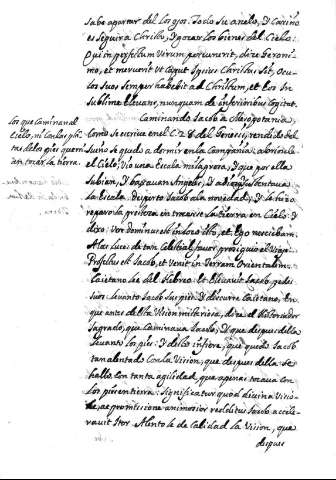 sabe apartar del los ojos. Todo su anelo, y cariño
es seguir a Christo, y gozar los bienes del Cielo:
Qui in perfectum virum pervenerit, dize Geroni-
mo, et meruerit ut caput ipsius Christus sit, ocu-
los suos semper habebit ad Christum, et eos in
sublime elevans, nunquam de inferioribus cogitat.
Caminando Jacob a Mesopotania,
como se escriue en el C. 28 del Genesis, rendido del
sueño se quedo a dormir en la Campaña: abriosele
el Cielo; Vio una Escala milagrosa, y que por ella
subian, y baxauan Angeles, y a Dios que sustentaua
la Escala. desperto Jacob a la novedad, y
reparo la en Cielo: y
dixo: Vere Dominus est in loco isto, et Ego nesciebam.
A las luces de tan Celestial fauor prosiguio el Viage
Profectus est Jacob, et venit in Terram Orientalem.
Caietano lee del Hebreo: Et Elevavit Jacob pedes
suos: Levanto Jacob sus pies: y discurre Caietano, en
que antes de esta Vision misteriosa, dize el Historiador
Sagrado, que Caminava Jacob; y que despues della
levanto los pies: y dello infiere, que quedo Jacob
tan alentado con la Vision, que despues della se
hallo con tanta agilidad, que apenas tocava con
los pies en tierra: Significatur quod divina visio-
ne, ac promissione animosior redditus Jacob accele-
ravit iter. Alentole de calidad la Vision, que
despues
Los que caminan al
Cielo, ni con las plã-
tas de los pies quieren
tocar la tierra.